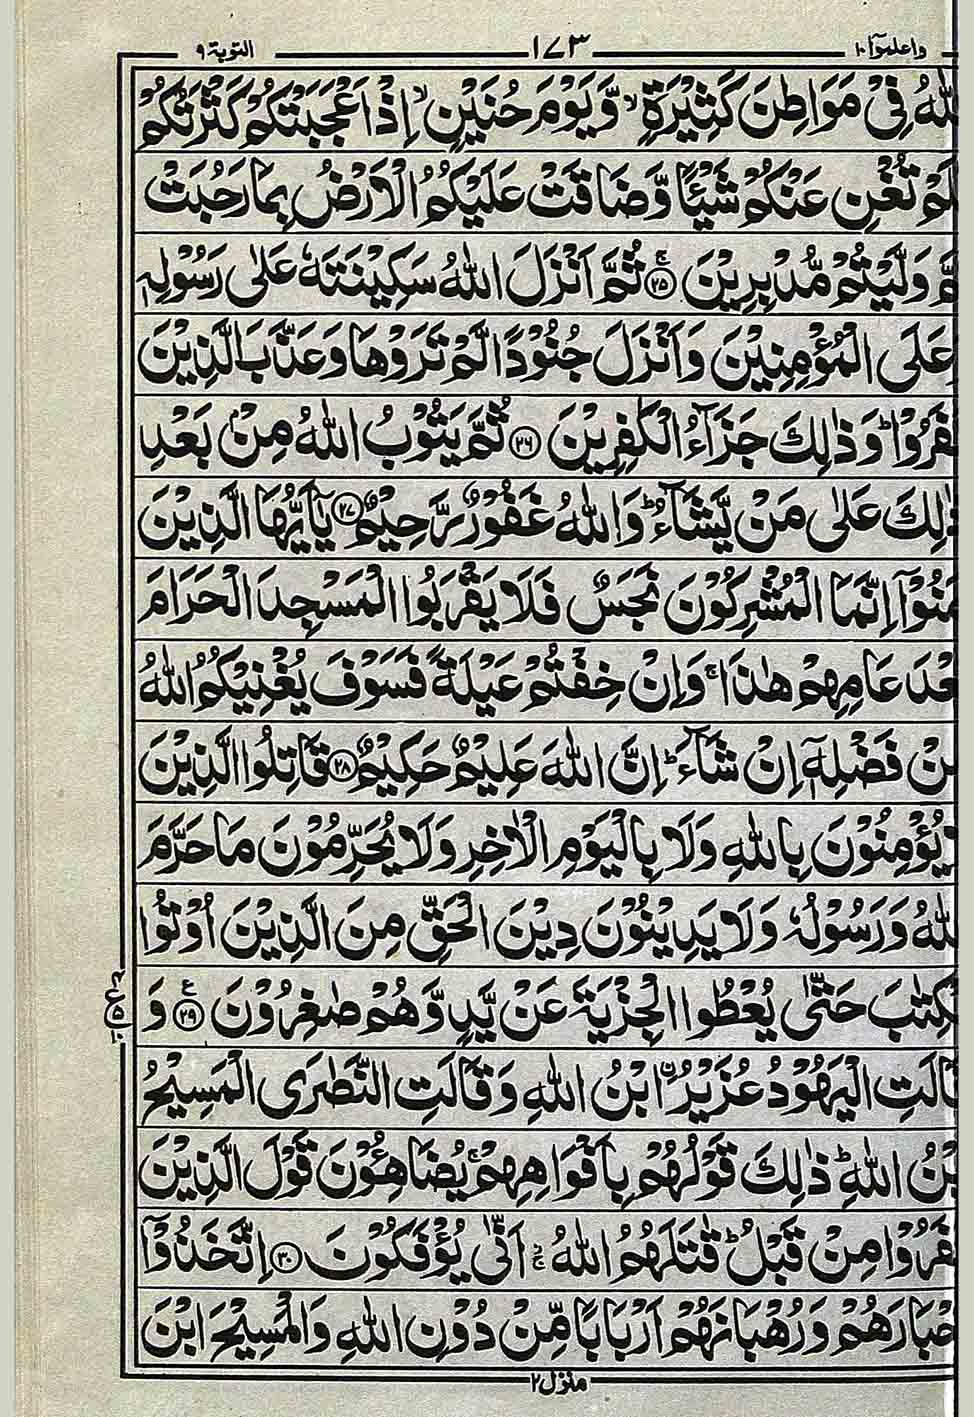 واعلموٓا ١٠ ١٧٣ التوبة ٩
اللّٰهُ فِیْ مَوَاطِنَ كَثِیْرَةٍ ۙ وَّیَوْمَ حُنَیْنٍ ۙ اِذْ اَعْجَبَتْكُمْ كَثْرَتُكُمْ
فَلَمْ تُغْنِ عَنْكُمْ شَیْـًٔا وَّضَاقَتْ عَلَیْكُمُ الْاَرْضُ بِمَا رَحُبَتْ
ثُمَّ وَلَّیْتُمْ مُّدْبِرِیْنَ ۚ ﴿۲۵﴾ ثُمَّ اَنْزَلَ اللّٰهُ سَكِیْنَتَهٗ عَلٰی رَسُوْلِهٖ
وَعَلَی الْمُؤْمِنِیْنَ وَاَنْزَلَ جُنُوْدًا لَّمْ تَرَوْهَا وَعَذَّبَ الَّذِیْنَ
كَفَرُوْا ؕ وَذٰلِكَ جَزَآءُ الْكٰفِرِیْنَ ﴿۲۶﴾ ثُمَّ یَتُوْبُ اللّٰهُ مِنْۢ بَعْدِ
ذٰلِكَ عَلٰی مَنْ یَّشَآءُ ؕ وَاللّٰهُ غَفُوْرٌ رَّحِیْمٌ ﴿۲۷﴾ یٰۤاَیُّهَا الَّذِیْنَ
اٰمَنُوْۤا اِنَّمَا الْمُشْرِكُوْنَ نَجَسٌ فَلَا یَقْرَبُوا الْمَسْجِدَ الْحَرَامَ
بَعْدَ عَامِهِمْ هٰذَا ۚ وَاِنْ خِفْتُمْ عَیْلَةً فَسَوْفَ یُغْنِیْكُمُ اللّٰهُ
مِنْ فَضْلِهٖۤ اِنْ شَآءَ ؕ اِنَّ اللّٰهَ عَلِیْمٌ حَكِیْمٌ ﴿۲۸﴾ قَاتِلُوا الَّذِیْنَ
لَا یُؤْمِنُوْنَ بِاللّٰهِ وَلَا بِالْیَوْمِ الْاٰخِرِ وَلَا یُحَرِّمُوْنَ مَا حَرَّمَ
اللّٰهُ وَرَسُوْلُهٗ وَلَا یَدِیْنُوْنَ دِیْنَ الْحَقِّ مِنَ الَّذِیْنَ اُوْتُوا
الْكِتٰبَ حَتّٰی یُعْطُوا الْجِزْیَةَ عَنْ یَّدٍ وَّهُمْ صٰغِرُوْنَ ﴿۲۹﴾ وَ
قَالَتِ الْیَهُوْدُ عُزَیْرُ ۨابْنُ اللّٰهِ وَقَالَتِ النَّصٰرَی الْمَسِیْحُ
ابْنُ اللّٰهِ ؕ ذٰلِكَ قَوْلُهُمْ بِاَفْوَاهِهِمْ ۚ یُضَاهِـُٔوْنَ قَوْلَ الَّذِیْنَ
كَفَرُوْا مِنْ قَبْلُ ؕ قٰتَلَهُمُ اللّٰهُ ۚ اَنّٰی یُؤْفَكُوْنَ ﴿۳۰﴾ اِتَّخَذُوْۤا
اَحْبَارَهُمْ وَرُهْبَانَهُمْ اَرْبَابًا مِّنْ دُوْنِ اللّٰهِ وَالْمَسِیْحَ ابْنَ
منزل ۲